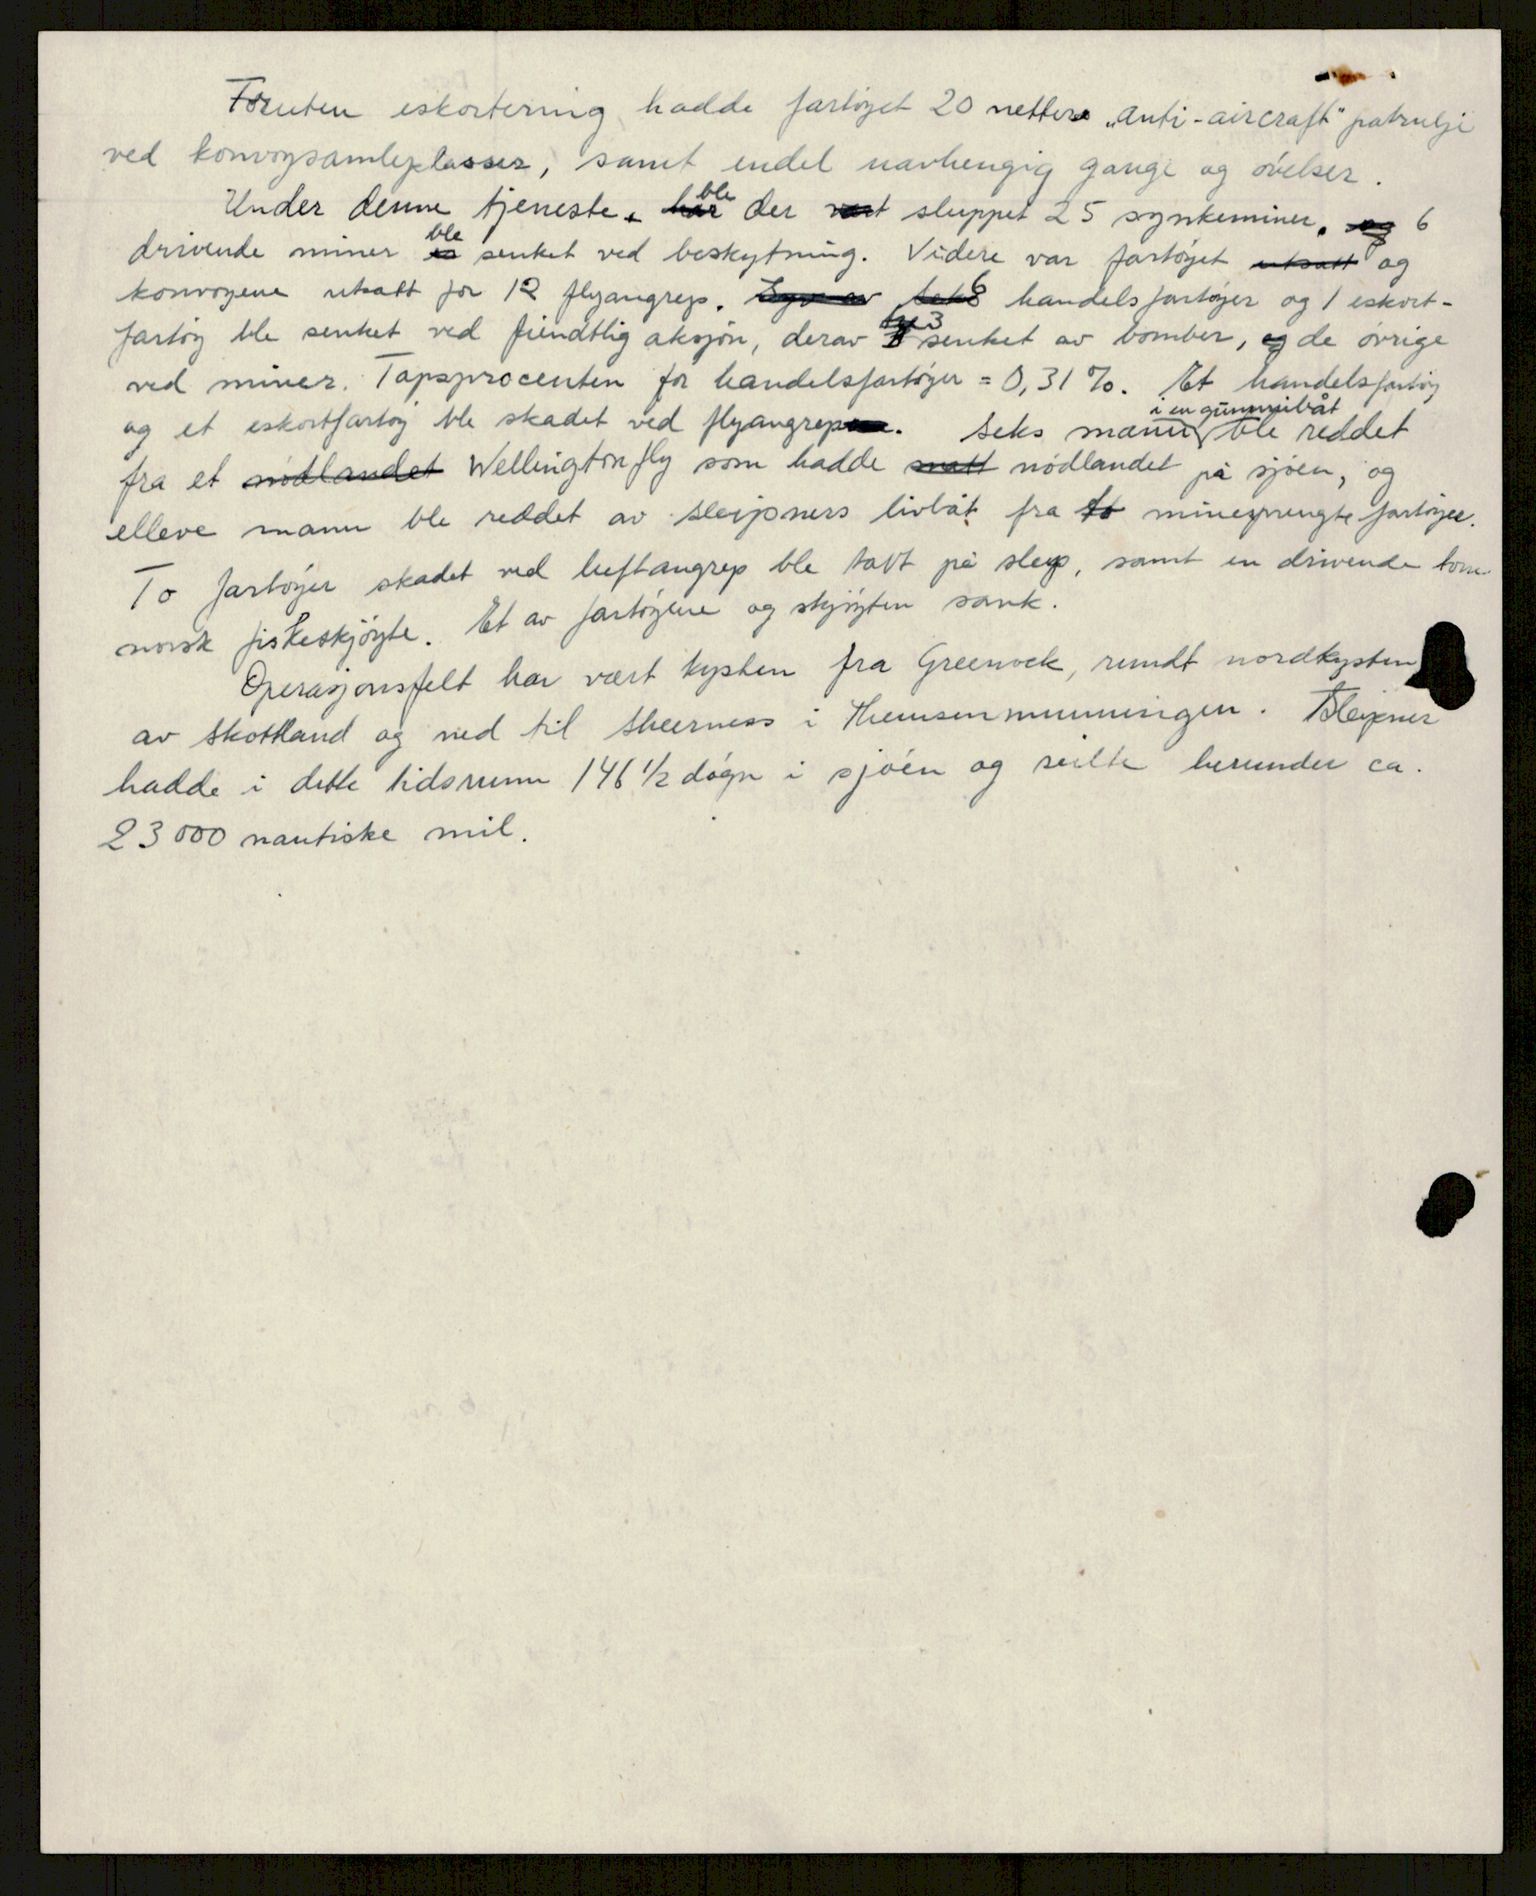 Foruten eskortering hadde fartöyet 20 netters „Anti-aircraft" patrulje
ved konvoysamleplasser, samt endel uavhengig gange og övelser.
Under denne tjeneste ble der sluppet 25 synkeminer. 6
drivende miner ble senket ved beskytning. Videre var fartöyet og
konvoyene utsatt for 12 flyangrep. 6 handelsfartöyer og 1 eskort-
fartöy ble senket ved fiendtlig aksjon, derav 3 senket av bomber, de övrige
ved miner. Tapsprocenten for handelsfartöyer = 0,31 %. Et handelsfartöy
og et eskortfartöy ble skadet ved flyangrep. Seks mann i en gummibåt ble reddet
fra et Wellington fly som hadde nödlandet på sjöen, og
elleve mann ble reddet av Sleipners livbåt fra minesprengte fartöyer.
To fartöyer skadet ved luftangrep ble tatt på slep, samt en drivende tom
norsk fiskeskjöyte. Et av fartöyene og skjöyten sank.
Operasjonsfelt har vært kysten fra Greenock, rundt nordkysten
av Skottland og ned til Sheerness i Themsenmunningen. Sleipner
hadde i dette tidsrum 146 1/2 dögn i sjöen og seilte herunder ca.
23 000 nautiske mil.